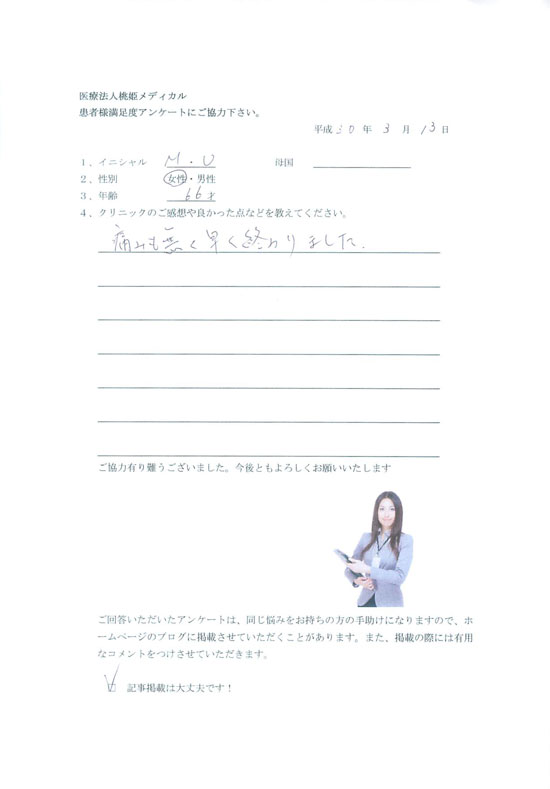 医療法人桃姫メディカル
患者様満足度アンケートにご協力下さい。
平成 30 年 3 月 13 日
1、イニシャル M・U 母国
2、性別 女性・男性
3、年齢 66 才
4、クリニックのご感想や良かった点などを教えてください。
痛みも無く早く終わりました.
ご協力有り難うございました。今後ともよろしくお願いいたします
ご回答いただいたアンケートは、同じ悩みをお持ちの方の手助けになりますので、ホ
ームページのブログに掲載させていただくことがあります。また、掲載の際には有用
なコメントをつけさせていただきます。
☑ 記事掲載は大丈夫です！